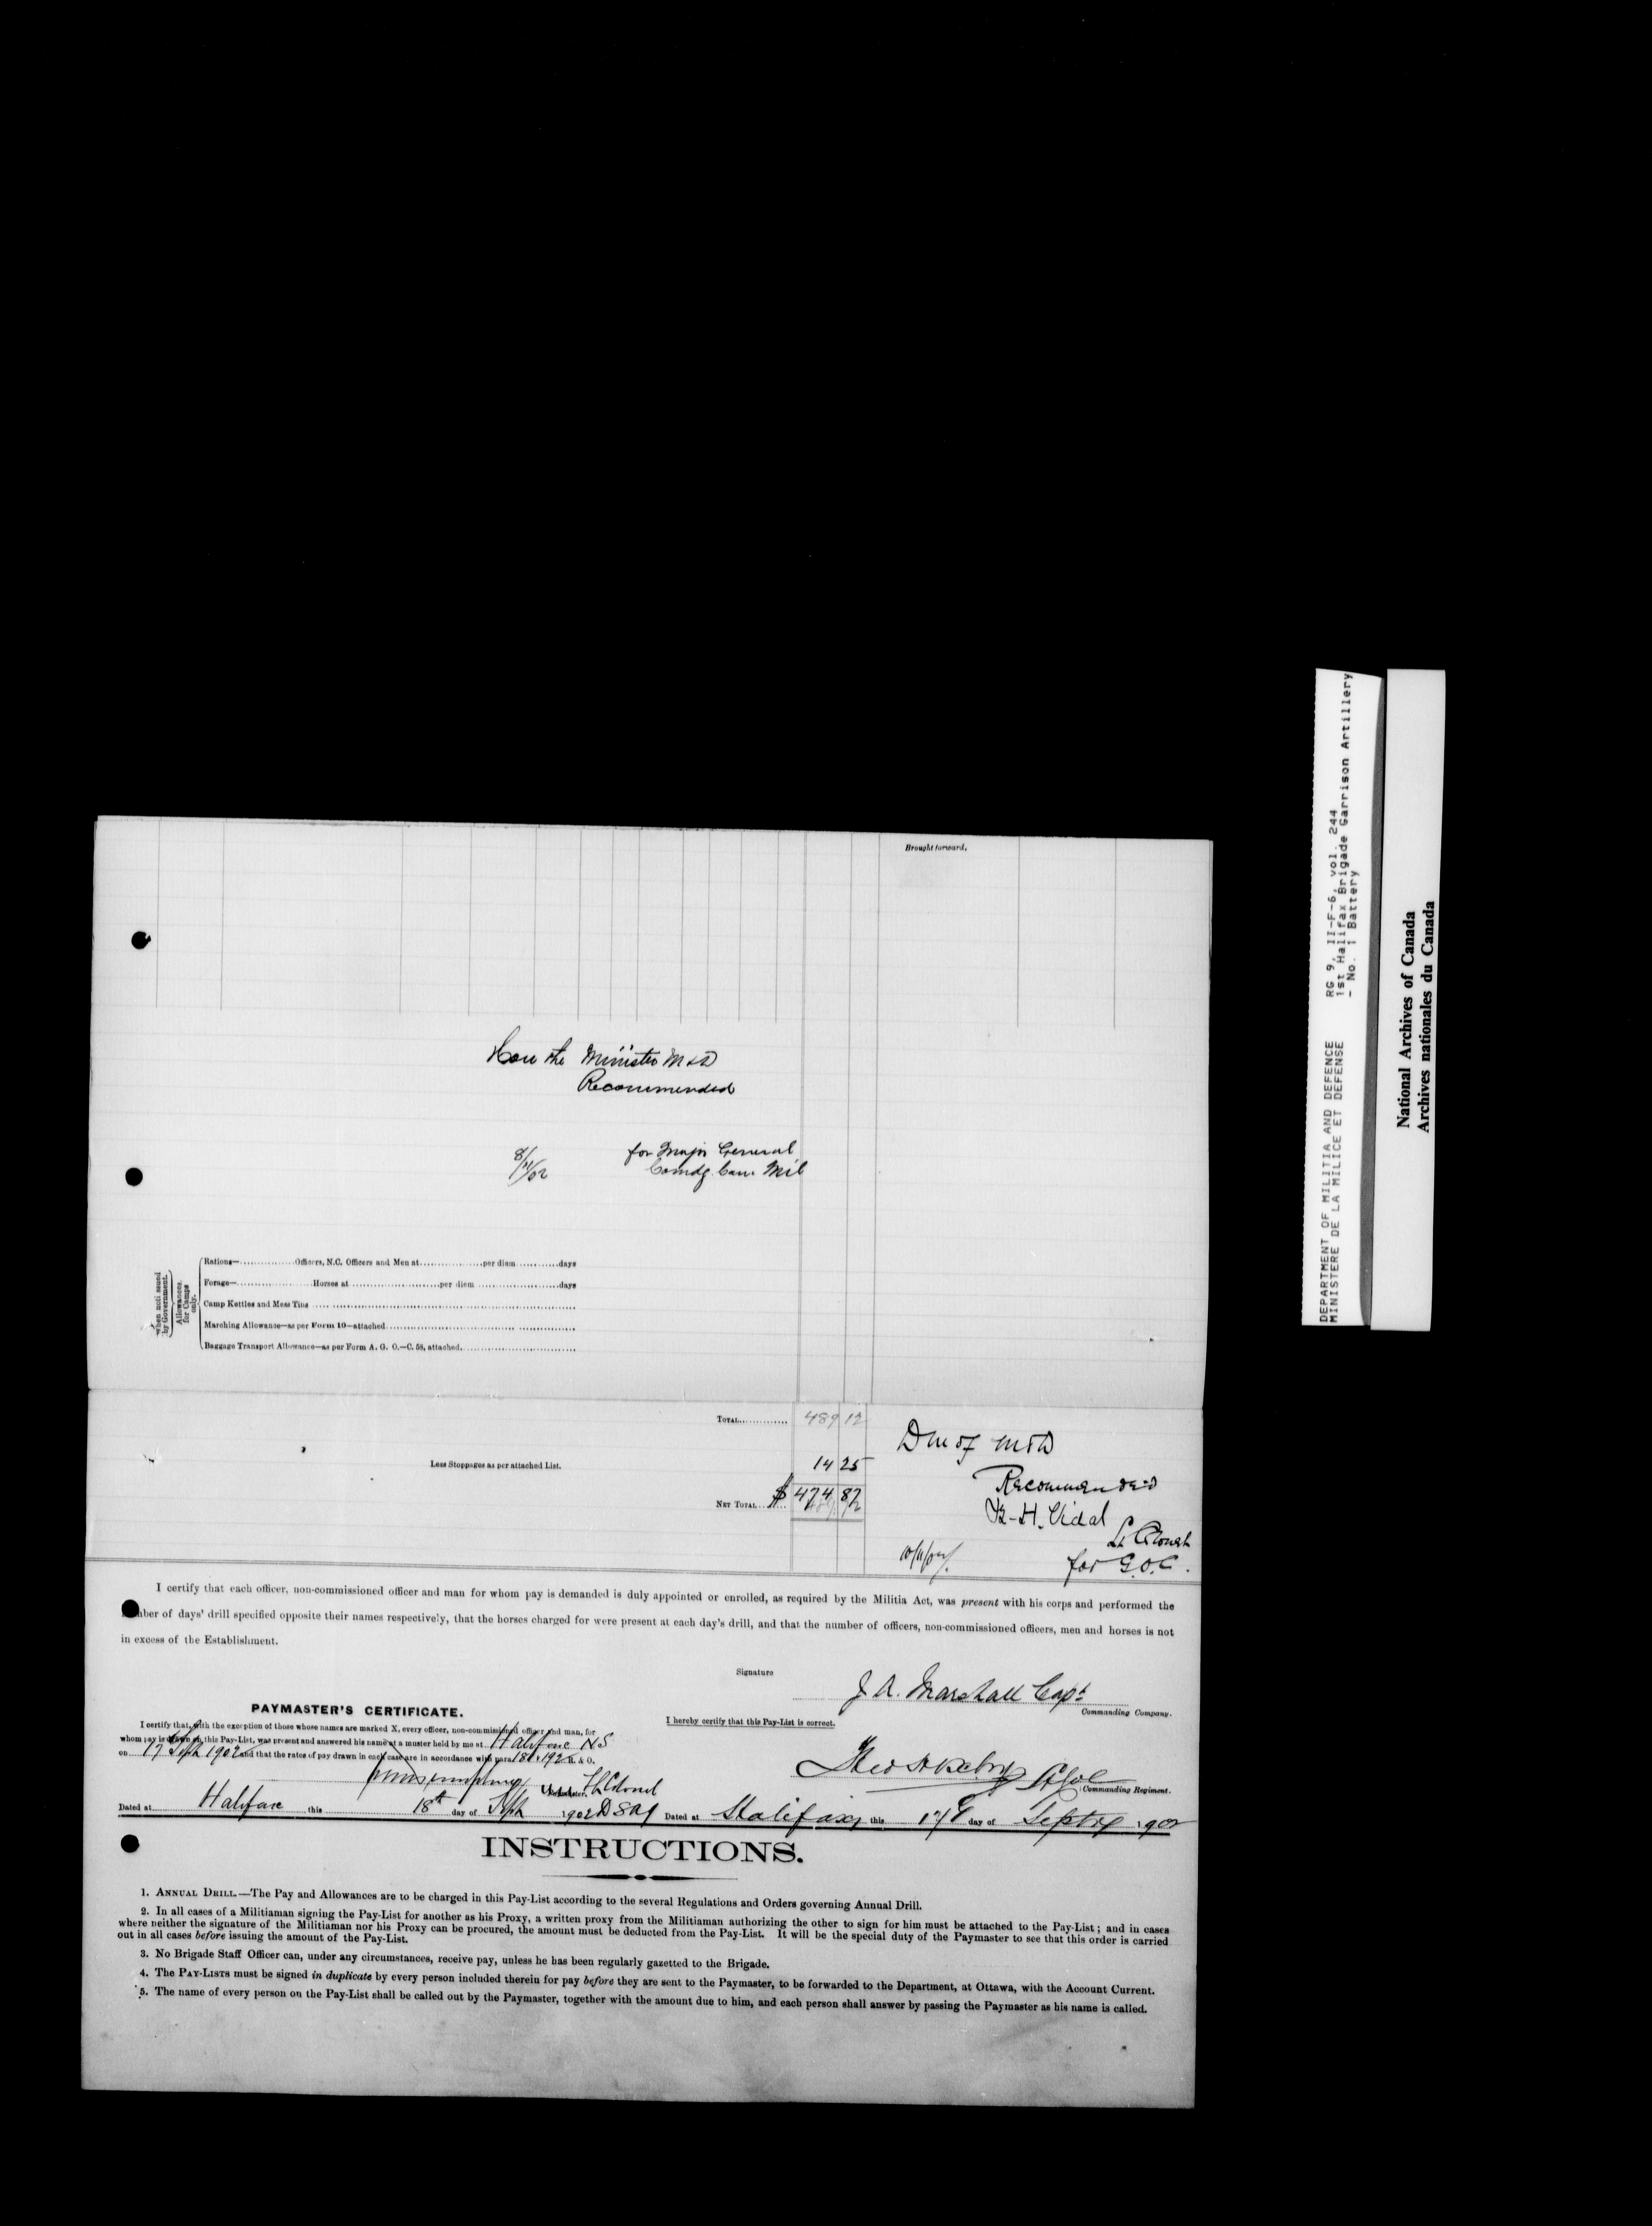 Brought forward.
Hon the Minister M & D
Recommended
for Major General
8/11/02
Comdg. Can. Mil
when not issued by Government.
Allowances for Camps only.
Rations—...............Officers, N.C. Officers and Men at................per diem...........days
Forage—......................Horses at........................per diem......................days
Camp Kettles and Mess Tins
Marching Allowance—as per Form 10—attached
Baggage Transport Allowance—as per Form A. G. O.—C. 58, attached.
TOTAL............. 489 12
Less Stoppages as per attached List. 14 25
NET TOTAL....... $ 474 87
D M of M & D
Recommended
B. H. Vidal
Lt Colonel
10/11/02.
for G.O.C.
I certify that each officer, non-commissioned officer and man for whom pay is demanded is duly appointed or enrolled, as required by the Militia Act, was present with his corps and performed the
number of days' drill specified opposite their names respectively, that the horses charged for were present at each day's drill, and that the number of officers, non-commissioned officers, men and horses is not
in excess of the Establishment.
Signature J A. Marshall Capt
Commanding Company.
PAYMASTER'S CERTIFICATE.
I certify that, with the exception of those whose names are marked X, every officer, non-commissioned officer and man, for
whom pay is drawn on this Pay-List, was present and answered his name at a muster held by me at Halifax N S
on 17 Sept 1902 and that the rates of pay drawn in each case are in accordance with para R. & O.
Lt Colonel
Paymaster.
Dated at Halifax this 18th day of Sept 1902 D S A
I hereby certify that this Pay-List is correct.
Commanding Regiment.
Dated at Halifax this 17 day of Septr 1902
INSTRUCTIONS.
1. ANNUAL DRILL.—The Pay and Allowances are to be charged in this Pay-List according to the several Regulations and Orders governing Annual Drill.
2. In all cases of a Militiaman signing the Pay-List for another as his Proxy, a written proxy from the Militiaman authorizing the other to sign for him must be attached to the Pay-List; and in cases
where neither the signature of the Militiaman nor his Proxy can be procured, the amount must be deducted from the Pay-List. It will be the special duty of the Paymaster to see that this order is carried
out in all cases before issuing the amount of the Pay-List.
3. No Brigade Staff Officer can, under any circumstances, receive pay, unless he has been regularly gazetted to the Brigade.
4. The PAY-LISTS must be signed in duplicate by every person included therein for pay before they are sent to the Paymaster, to be forwarded to the Department, at Ottawa, with the Account Current.
5. The name of every person on the Pay-List shall be called out by the Paymaster, together with the amount due to him, and each person shall answer by passing the Paymaster as his name is called.
DEPARTMENT OF MILITIA AND DEFENCE RG 9, II-F-6, vol. 244
MINISTERE DE LA MILICE ET DEFENSE 1st Halifax Brigade Garrison Artillery
- No. 1 Battery
National Archives of Canada
Archives nationales du Canada